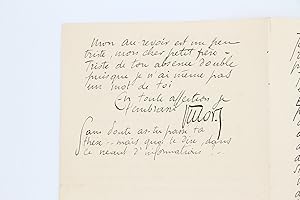 Mon au-revoir est un peu
triste, mon cher petit frère -
Triste de ton absence double
puisque je n'ai même pas
un mot de toi
En toute affection je
t'embrasse
Sans doute as-tu passé ta
thèse -- mais quoi te dire, dans
le néant d'informations...